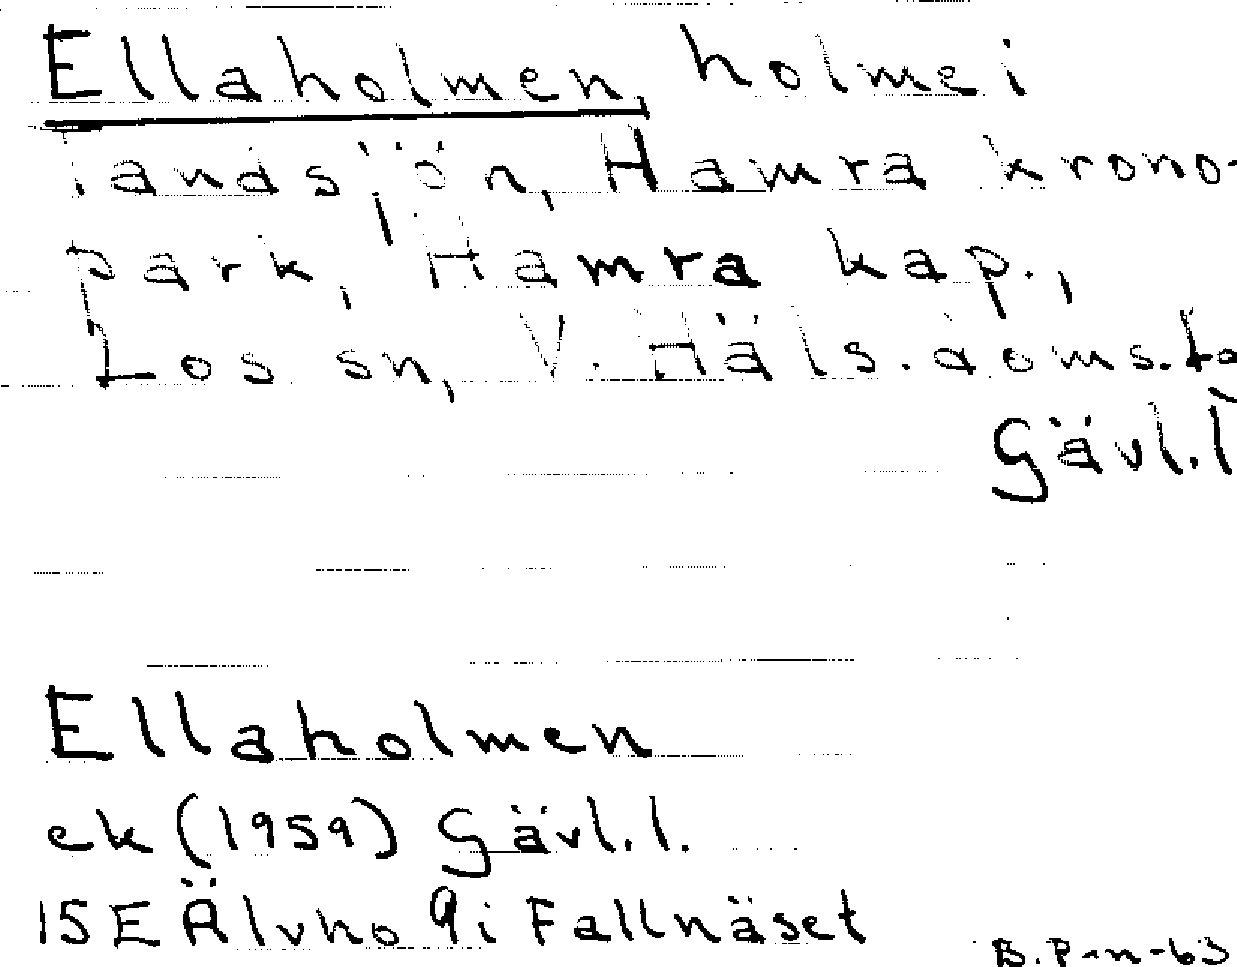 Ellaholmen, holme i
Tandsjön, Hamra krono-
park, Hamra kap.,
Los sn, V. Häls. doms.
Gävl. l
Ellaholmen
ek (1959) Gävl. l.
15 E Älvho 9i Fallnäset
B. P-n-63